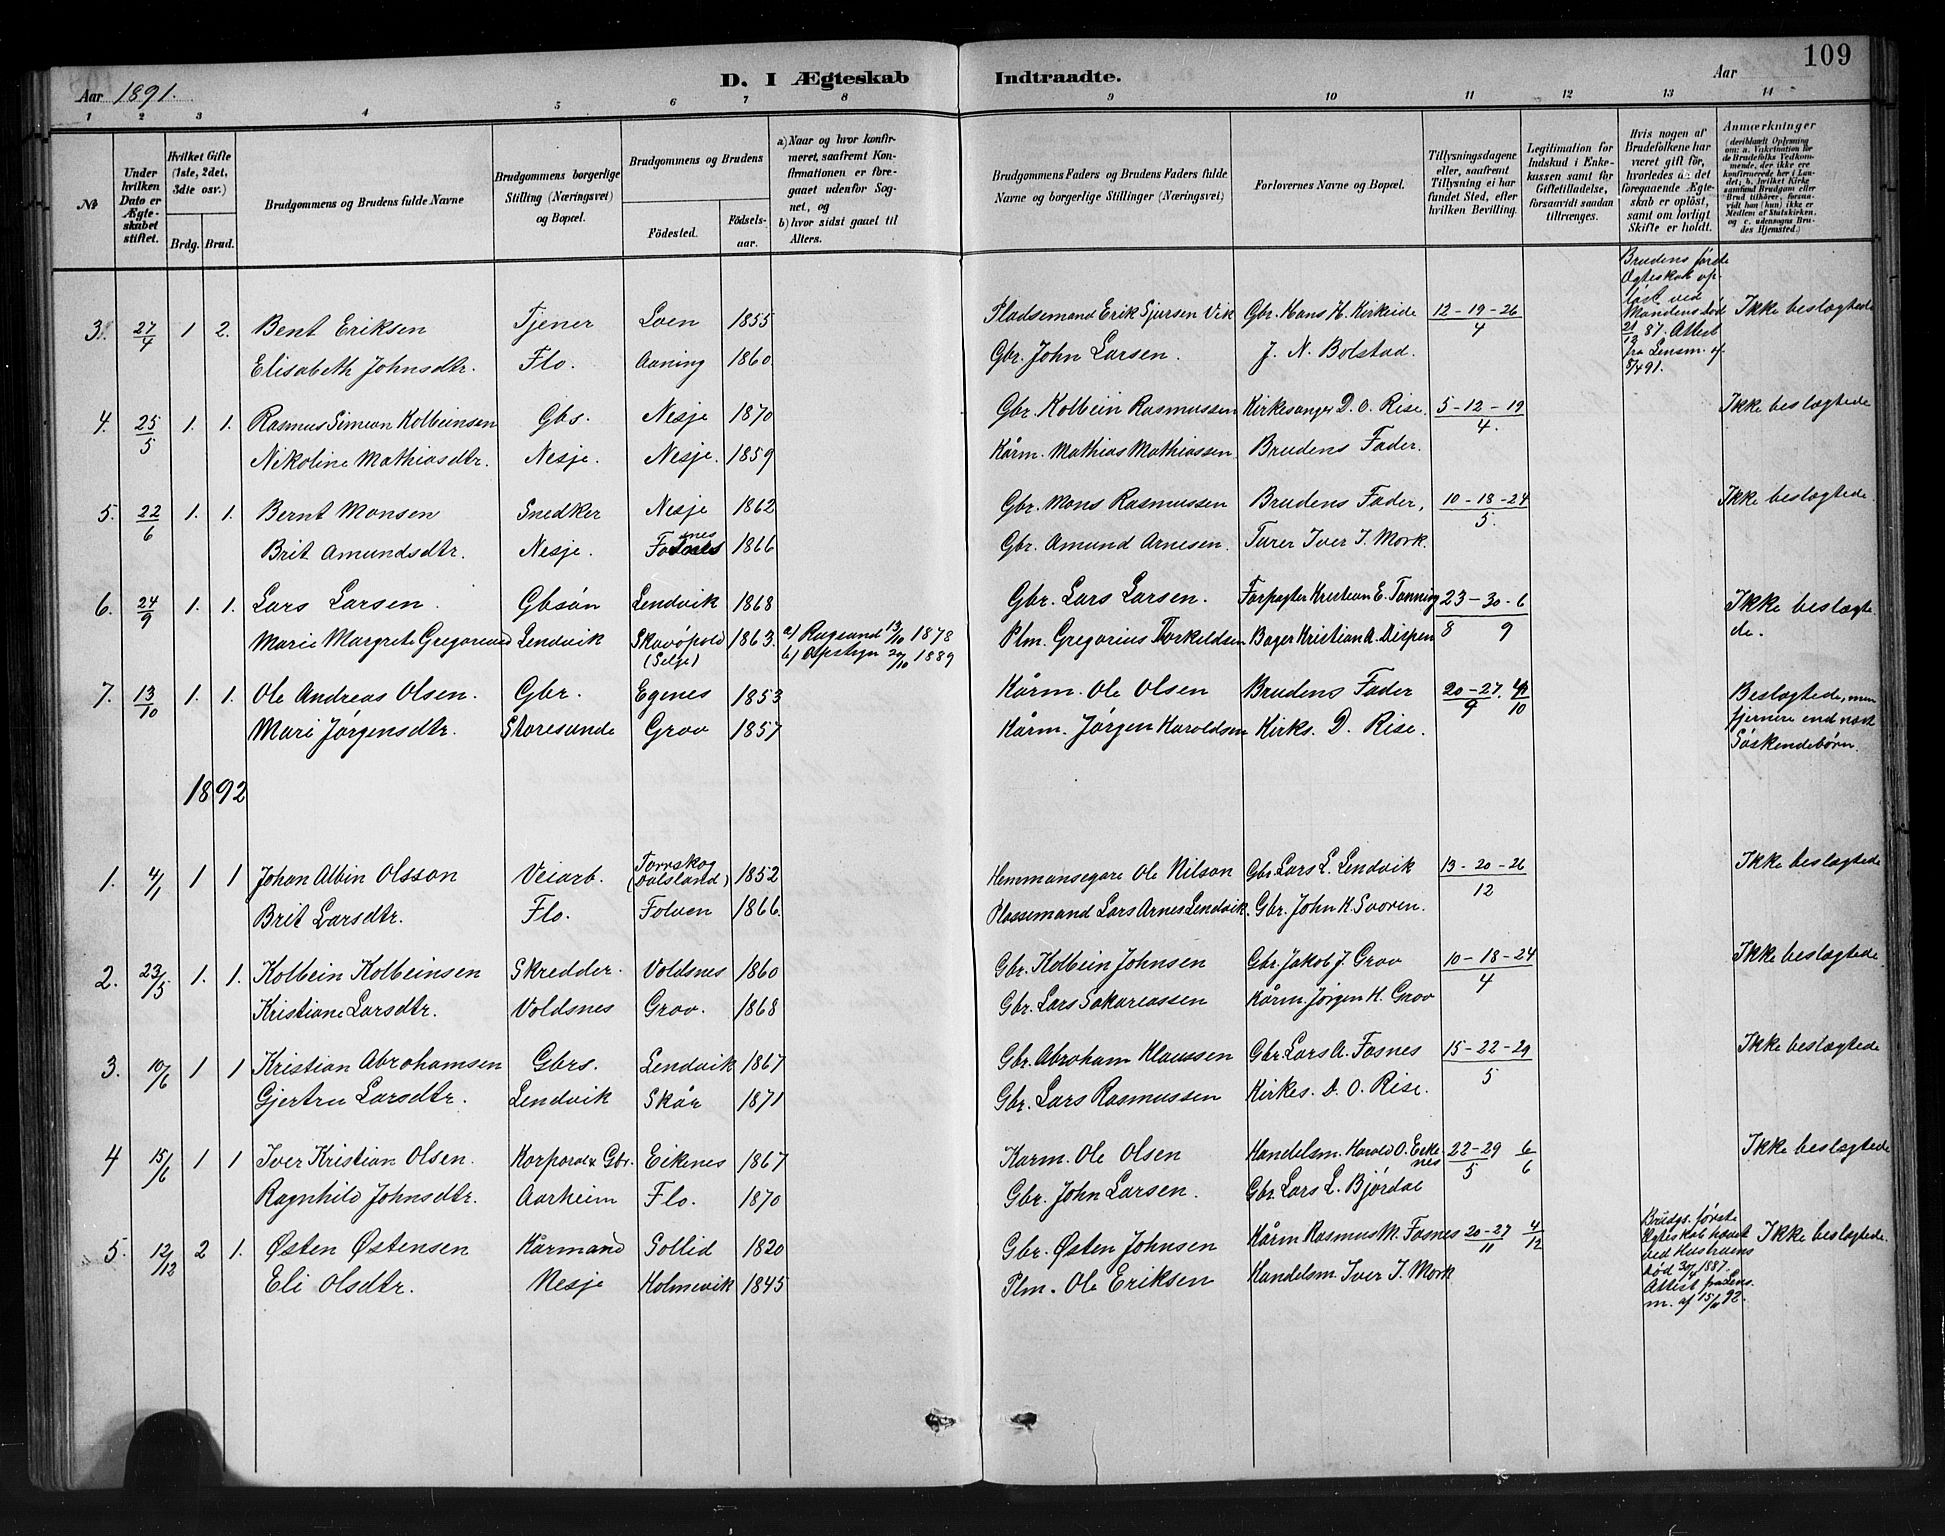 109
D. I Ægteskab Indtraadte.
Aar 1891.
Aar
1 2 3 4 5 6 7 8 9 10 11 12 13 14
№
Under hvilken Dato er Ægteskabet stiftet.
Hvilket Gifte (1ste, 2det, 3die osv.)
Brdg. Brud.
Brudgommens og Brudens fulde Navne
Brudgommens borgerlige Stilling (Næringsvei) og Bopæl.
Brudgommens og Brudens
Fødested. Fødselsaar.
a) Naar og hvor konfirmeret, saafremt Konfirmationen er foregaaet udenfor Sognet, og
b) hvor sidst gaaet til Alters.
Brudgommens Faders og Brudens Faders fulde Navne og borgerlige Stillinger (Næringsvei)
Forlovernes Navne og Bopæl.
Tillysningsdagene eller, saafremt Tillysning ei har fundet Sted, efter hvilken Bevilling.
Legitimation for Indskud i Enkekassen samt for Giftetilladelse, forsaavidt saadan tiltrænges.
Hvis nogen af Brudefolkene har været gift før, hvorledes da det foregaaende Ægteskab er opløst, samt om lovligt Skifte er holdt.
Anmærkninger (deriblandt Oplysning om: a. Vakcination for de Brudefolks Vedkommende, der ikke ere konfirmerede her i Landet; b. hvilket Kirkesamfund Brudgom eller Brud tilhører, forsaavidt han (hun) ikke er Medlem af Statskirken, og c. udensogns Brudes Hjemsted.)
3. 27/4 1 2. Bent Eriksen Tjener Loen 1855 Pladsemand Erik Sjursen Vik Gbr. Hans H. Kirkeide 12-19-26/4 Brudens første Ægteskab opløst ved Mandens død 21/12 87. Attest fra Lensm. af 5/4 91. Ikke beslægtede
Elisabeth Johnsdtr. Flo. Aaning 1860 Gbr. John Larsen. J. N. Bolstad.
4. 25/5 1. 1. Rasmus Simeon Kolbeinsen Gbs. Nesje 1870 Gbr. Kolbein Rasmussen Kirkesanger D. O. Rise. 5-12-19/4. Ikke beslægtede
Nikoline Mathiasdtr. Nesje. Nesje. 1859 Kårm. Mathias Mathiassen Brudens Fader.
5. 22/6 1. 1. Bernt Monsen Snedker Nesje 1862 Gbr. Mons Rasmussen Brudens Fader, 10-18-24/5. Ikke beslægtede
Brit Amundsdtr. Nesje. 1866 Gbr. Amund Arnesen. Turer Iver J. Mork.
6. 24/9 1. 1. Lars Larsen. Gbsøn Lendvik 1868 Gbr. Lars Larsen. Forpagter Kristian E. Tonning 23-30-6/8 9 Ikke beslægtede.
Marie Margrete Gregorusd Lendvik (Selje) 1863. a) Rugsund 13/10 1878 b) 20/10 1889 Plm. Gregorius Thorkeldsen Bager Kristian A. Dispen
7. 13/10 1. 1. Ole Andreas Olsen. Gbr. Egenes 1853 Kårm. Ole Olsen Brudens Fader 20-27/9 4/10 Beslægtede, men fjernere end næst Søskendebørn.
Mari Jørgensdtr. Storesunde Grov 1857 Kårm. Jørgen Haroldsen Kirks. D. Rise.
1892
1. 4/1 1 1 Johan Albin Olsson Veiarb. Torrskog (Dalsland) 1852 Hemmansegare Ole Nilson Gbr. Lars L. Lendvik 13-20-26/12 Ikke beslægtede
Brit Larsdtr. Flo. Folven 1866. Plassemand Lars Arnes Lendvik. Gbr. John H. Svoren.
2. 23/5 1. 1. Kolbein Kolbeinsen Skredder. Voldsnes 1860 Gbr. Kolbein Johnsen Gbr. Jakob J. Grov 10-18-24/4 Ikke beslægtede.
Kristiane Larsdtr. Voldsnes Grov. 1868 Gbr. Lars Sakariassen Kårm. Jørgen H. Grov
3. 10/6 1 1 Kristian Abrahamsen Gbrs. Lendvik 1867 Gbr. Abraham Klaussen Gbr. Lars A. Fosnes 15-22-29/5 Ikke beslægtede
Gjertru Larsdtr. Lendvik Skår 1871 Gbr. Lars Rasmussen Kirkes. D. O. Rise.
4 15/6 1 1 Iver Kristian Olsen. Korporal & Gbr. Eiknes 1867 Karm. Ole Olsen Handelsm. Harold O. Eiknes 22-29/5 6/6 Ikke beslægtede
Ragnhild Johnsdtr. Aarheim Flo. 1870 Gbr. John Larsen. Gbr. Lars L. Bjørdal
5. 12/12 2 1. Østen Østensen Kårmand Sollid 1820 Gbr. Østen Johnsen Kårm Rasmus M. Fosnes 20-27/11 4/12 Brudgs. første Ægteskab hævet ved Hustruens død 30/4 1887. Attest fra Lensm. af 92. Ikke beslægtede
Eli Olsdtr. Nesje Holmevik 1845 Plm. Ole Eriksen Handelsm. Iver J. Mork